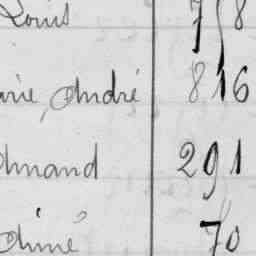 Louis 758
arie, André 816
Armand 291
Aimé 70